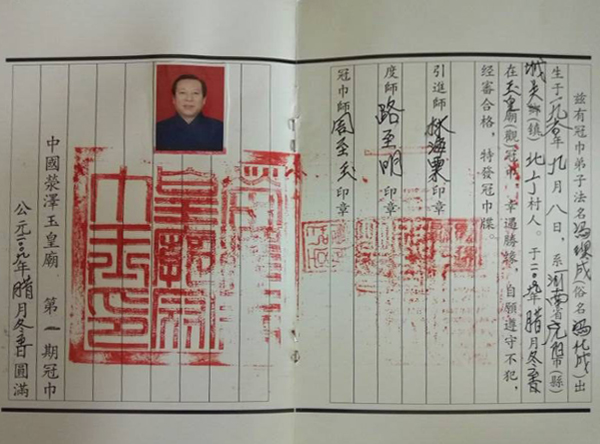 茲有冠巾弟子法名冯成(俗名冯化成)出
生于一九年九月八日，系河南省荥阳市(縣)
城关鄉(镇)北丁村人。于二〇〇九年腊月冬日
在玉皇廟(觀)冠巾，幸遇勝緣，自願遵守不犯，
經審合格，特發冠巾牒。
引進師 林海粟 印章
度師 路至明 印章
冠巾師 周至玄 印章
中國滎澤玉皇廟 第一期冠巾
公元二〇〇九年腊月冬日圓滿